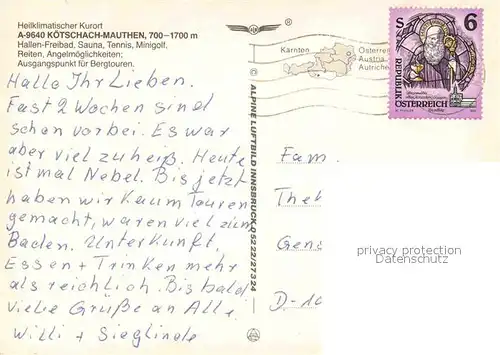 Heilklimatischer Kurort
A-9640 KÖTSCHACH-MAUTHEN, 700–1700 m
Hallen-Freibad, Sauna, Tennis, Minigolf,
Reiten, Angelmöglichkeiten;
Ausgangspunkt für Bergtouren.
Hallo Ihr Lieben.
Fast 2 Wochen sind
schon vorbei. Es war
aber viel zu heiß. Heute
ist mal Nebel. Bis jetzt
haben wir kaum Touren
gemacht, waren viel zum
Baden. Unterkunft,
Essen + Trinken mehr
als reichlich. Bis bald
viele Grüße an Alle
Willi + Sieglinde
ALPINE LUFTBILD INNSBRUCK, 05222/27324
Kärnten
Österrei
Austria
Autriche
S 6
REPUBLIK
ÖSTERREICH
Fam.
The
Gen
D-10
privacy protection
Datenschutz